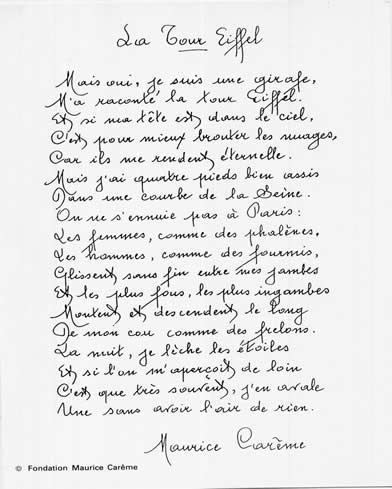 La Tour Eiffel
Mais oui, je suis une girafe,
M'a raconté la tour Eiffel.
Et si ma tête est dans le ciel,
C'est pour mieux brouter les nuages,
Car ils me rendent éternelle.
Mais j'ai quatre pieds bien assis
Dans une courbe de la Seine.
On ne s'ennuie pas à Paris :
Les femmes, comme des phalènes,
Les hommes, comme des fourmis,
Glissent sans fin entre mes jambes
Et les plus fous, les plus ingambes
Montent et descendent le long
De mon cou comme des frelons.
La nuit, je lèche les étoiles
Et si l'on m'aperçoit de loin
C'est que très souvent, j'en avale
Une sans avoir l'air de rien.
Maurice Carême
© Fondation Maurice Carême